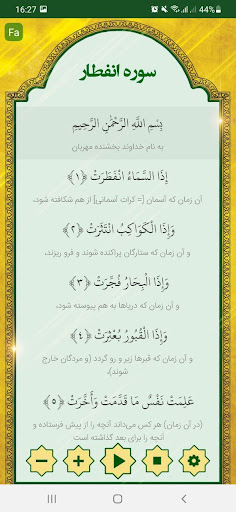 16:27
44%
Fa
سوره انفطار
بِسْمِ اللَّهِ الرَّحْمَٰنِ الرَّحِيمِ
به نام خداوند بخشنده مهربان
إِذَا السَّمَاءُ انْفَطَرَتْ ﴿۱﴾
آن زمان که آسمان [= کرات آسمانی‌] از هم شکافته شود،
وَإِذَا الْكَوَاكِبُ انْتَثَرَتْ ﴿۲﴾
و آن زمان که ستارگان پراکنده شوند و فرو ریزند،
وَإِذَا الْبِحَارُ فُجِّرَتْ ﴿۳﴾
و آن زمان که دریاها به هم پیوسته شود،
وَإِذَا الْقُبُورُ بُعْثِرَتْ ﴿۴﴾
و آن زمان که قبرها زیر و رو گردد (و مردگان خارج
شوند)،
عَلِمَتْ نَفْسٌ مَا قَدَّمَتْ وَأَخَّرَتْ ﴿۵﴾
(در آن زمان) هر کس می‌داند آنچه را از پیش فرستاده و
آنچه را برای بعد گذاشته است